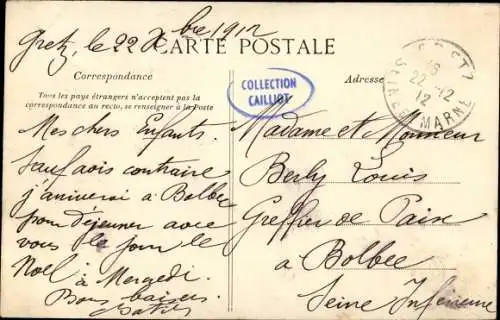 Gretz, le 22 Xbre 1912
CARTE POSTALE
Correspondance
Adresse
Tous les pays étrangers n'acceptent pas la
correspondance au recto, se renseigner à la Poste
COLLECTION
CAILLIOT
GRETZ
16
22-12
12
SEINE-ET-MARNE
Mes chers Enfants.
Sauf avis contraire
j'arriverai à Bolbec
pour déjeuner avec
vous le jour de
Noël
à Mercredi.
Bons baisers.
Madame et Monsieur
Berly Louis
Greffier de Paix
à Bolbec
Seine Inférieure